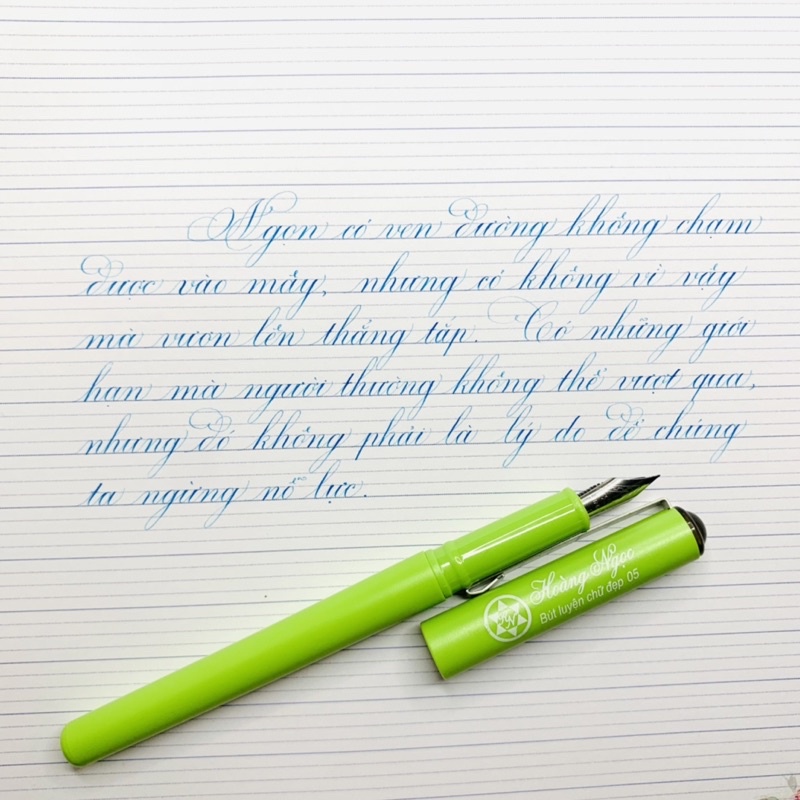 Ngọn cỏ ven đường không chạm
được vào mây, nhưng cỏ không vì vậy
mà vươn lên thẳng tắp. Có những giới
hạn mà người thường không thể vượt qua,
nhưng đó không phải là lý do để chúng
ta ngừng nỗ lực.
Hoàng Ngọc
Bút luyện chữ đẹp 05
HN